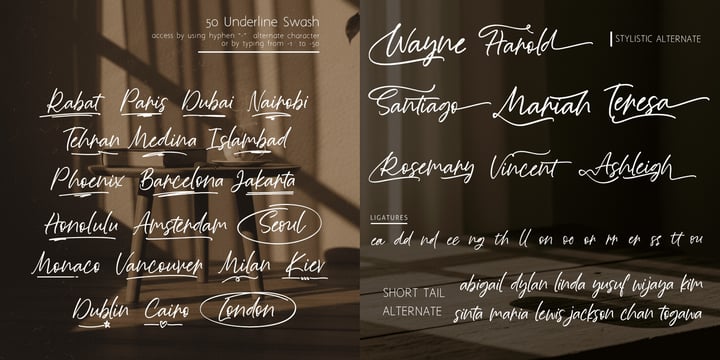 50 Underline Swash
access by using hyphen "-" alternate character
or by typing from -1 to -50
Rabat Paris Dubai Nairobi
Tehran Medina Islambad
Phoenix Barcelona Jakarta
Honolulu Amsterdam Seoul
Monaco Vancouver Milan Kiev
Dublin Cairo London
Wayne Harold
STYLISTIC ALTERNATE
Santiago Mariah Teresa
Rosemary Vincent Ashleigh
LIGATURES
ea dd nd ee ng th ll on oe or rr er ss tt ou
SHORT TAIL
ALTERNATE
abigail dylan linda yusuf wijaya kim
sinta maria lewis jackson chan togawa